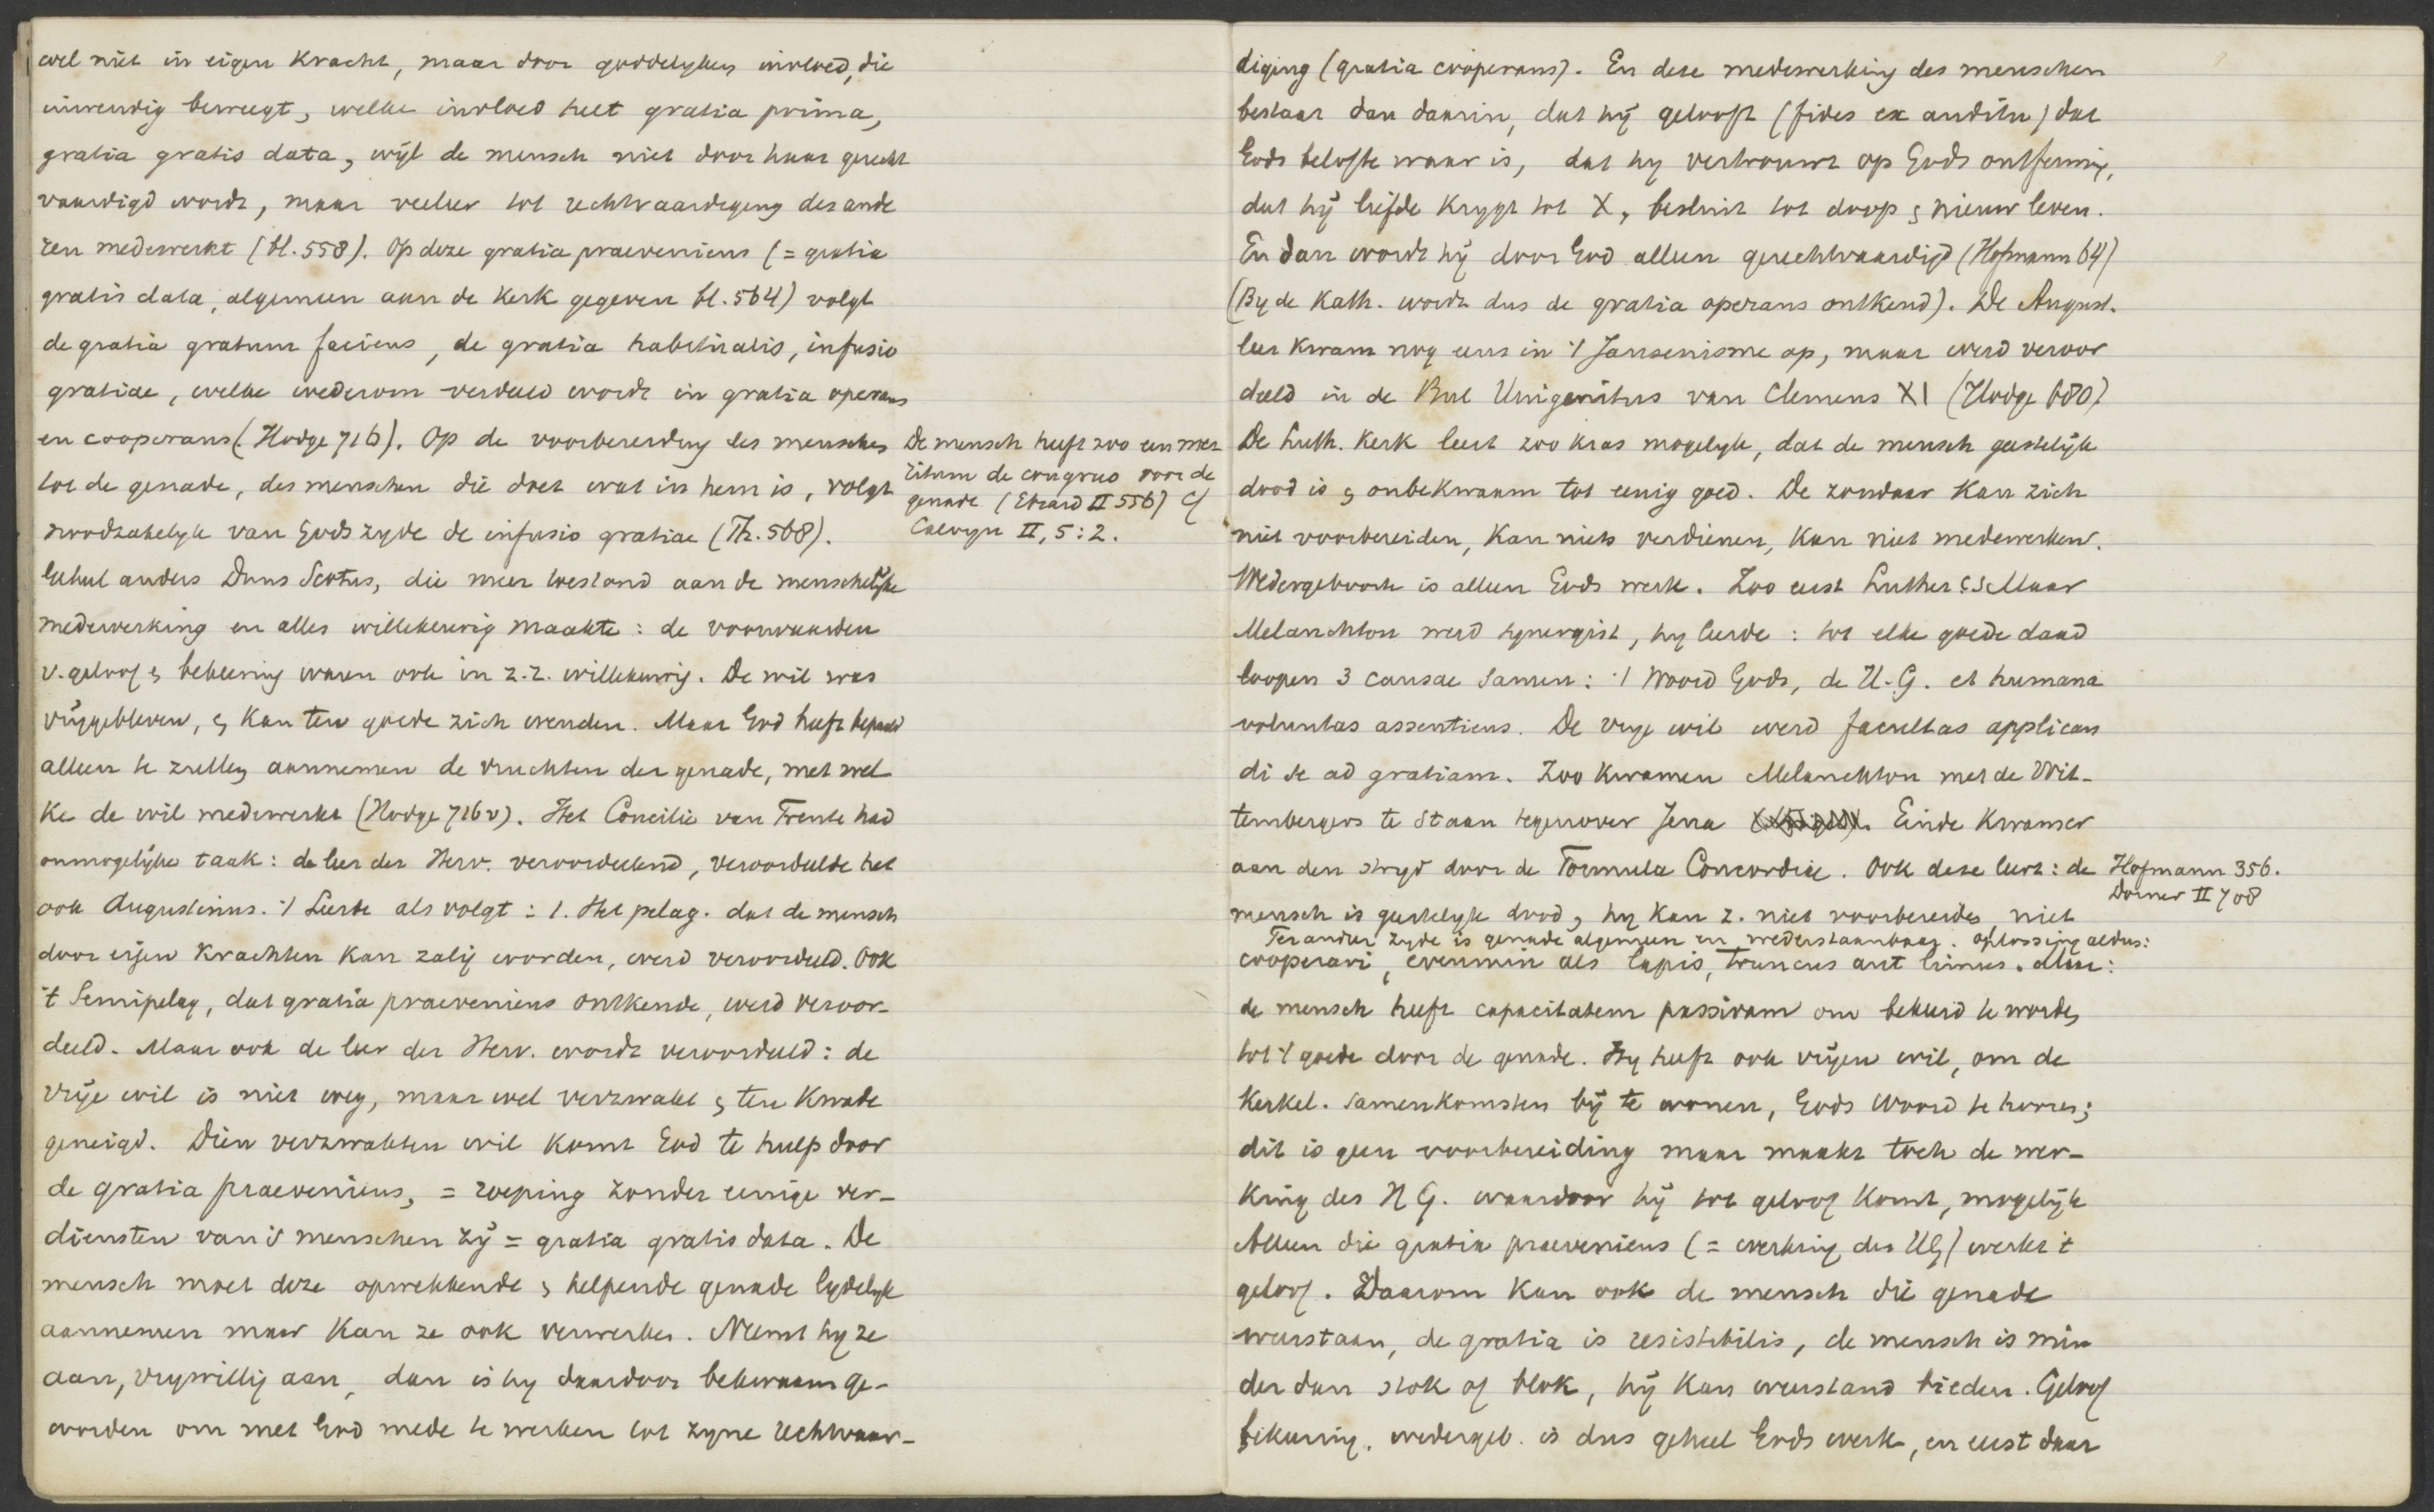 wel niet in eigen kracht, maar door goddelyken invloed, die
inwendig beweegt, welke invloed heet gratia prima,
gratia gratis data, wijl de mensch niet door haar gerecht
vaardigd wordt, maar veeleer tot rechtvaardiging des ande
ren medewerkt (bl. 558). Op deze gratia praeveniens (= gratia
gratis data, algemeen aan de Kerk gegeven bl. 564) volgt
de gratia gratum faciens, de gratia habitualis, infusio
gratiae, welke wederom verdeeld wordt in gratia operans
en cooperans (Hodge 716). Op de voorbereiding des menschen
tot de genade, des menschen die doet wat in hem is, volgt
noodzakelyk van Gods zyde de infusio gratiae (Th. 568).
De mensch heeft zoo een me
ritum de congruo voor de
genade (Ebrard II 556) Cf
Calvyn II, 5:2.
Geheel anders Duns Scotus, die meer toestond aan de menschelijke
medewerking en alles willekeurig maakte: de voorwaarden
v. geloof & bekeering waren ook in z. z. willekeurig. De wil was
vrijgebleven, & kan ten goede zich wenden. Maar God heeft bepaald
alleen te zullen aannemen de vruchten der genade, met wel
ke de wil medewerkt (Hodge 716v). Het Concilie van Trente had
onmogelijke taak: de leer der Herv. veroordeelend, veroordeelde het
ook Augustinus. 't Leerde als volgt: 1. Het pelag. dat de mensch
door eigen krachten kan zalig worden, werd veroordeeld. Ook
't Semipelag, dat gratia praeveniens ontkende, werd veroor-
deeld. Maar ook de leer der Herv. wordt veroordeeld: de
vrije wil is niet weg, maar wel verzwakt & ten kwade
geneigd. Dien verzwakten wil komt God te hulp door
de gratia praeveniens, = roeping zonder eenige ver-
diensten van 's menschen zij = gratia gratis data. De
mensch moet deze opwekkende & helpende genade lydelyk
aannemen maar kan ze ook verwerpen. Neemt hy ze
aan, vrywillig aan, dan is hy daardoor bekwaam ge-
worden om met God mede te werken tot zyne rechtvaar-
diging (gratia cooperans). En deze medewerking des menschen
bestaat dan daarin, dat hij gelooft (fides ex auditu) dat
Gods belofte waar is, dat hy vertrouwt op Gods ontferming,
dat hij liefde krygt tot X, besluit tot doop & nieuw leven.
En dan wordt hij door God alleen gerechtvaardigd (Hofmann 64)
(By de Kath. wordt dus de gratia operans ontkend). De August.
leer kwam nog eens in 't Jansenisme op, maar werd veroor
deeld in de Bul Unigenitus van Clemens XI (Hodge 680)
De Luth. Kerk leert zoo kras mogelyk, dat de mensch geestelijk
dood is & onbekwaam tot eenig goed. De zondaar kan zich
niet voorbereiden, kan niets verdienen, kan niet medewerken.
Wedergeboorte is alleen Gods werk. Zoo eerst Luther cs Maar
Melanchton werd synergist, hy leerde: tot elke goede daad
loopen 3 causae samen: 't Woord Gods, de H. G. et humana
voluntas assentiens. De vrye wil werd facultas applican
di se ad gratiam. Zoo kwamen Melanchton met de Wit-
tembergers te staan tegenover Jena Einde kwam er
aan den stryd door de Formula Concordiae. Ook deze leert: de
Hofmann 356.
Dorner II 708
mensch is geestelyk dood, hy kan z. niet voorbereiden niet
Ter ander zyde is genade algemeen en wederstaanbaar. oplossing aldus:
cooperari, evenmin als lapis, truncus aut limus. Maar:
de mensch heeft capacitatem passivam om bekeerd te worden
tot 't goede door de genade. Hy heeft ook vrijen wil, om de
kerkel. samenkomsten bij te wonen, Gods Woord te hooren;
dit is geen voorbereiding maar maakt toch de wer-
king des H G. waardoor hij tot geloof komt, mogelijk
Alleen die gratia praeveniens (= werking des HG) werkt 't
geloof. Daarom kan ook de mensch die genade
weerstaan, de gratia is resistibilis, de mensch is min
der dan stok of blok, hij kan weerstand bieden. Geloof
bekeering. wedergeb. is dus geheel Gods werk, en eerst daar